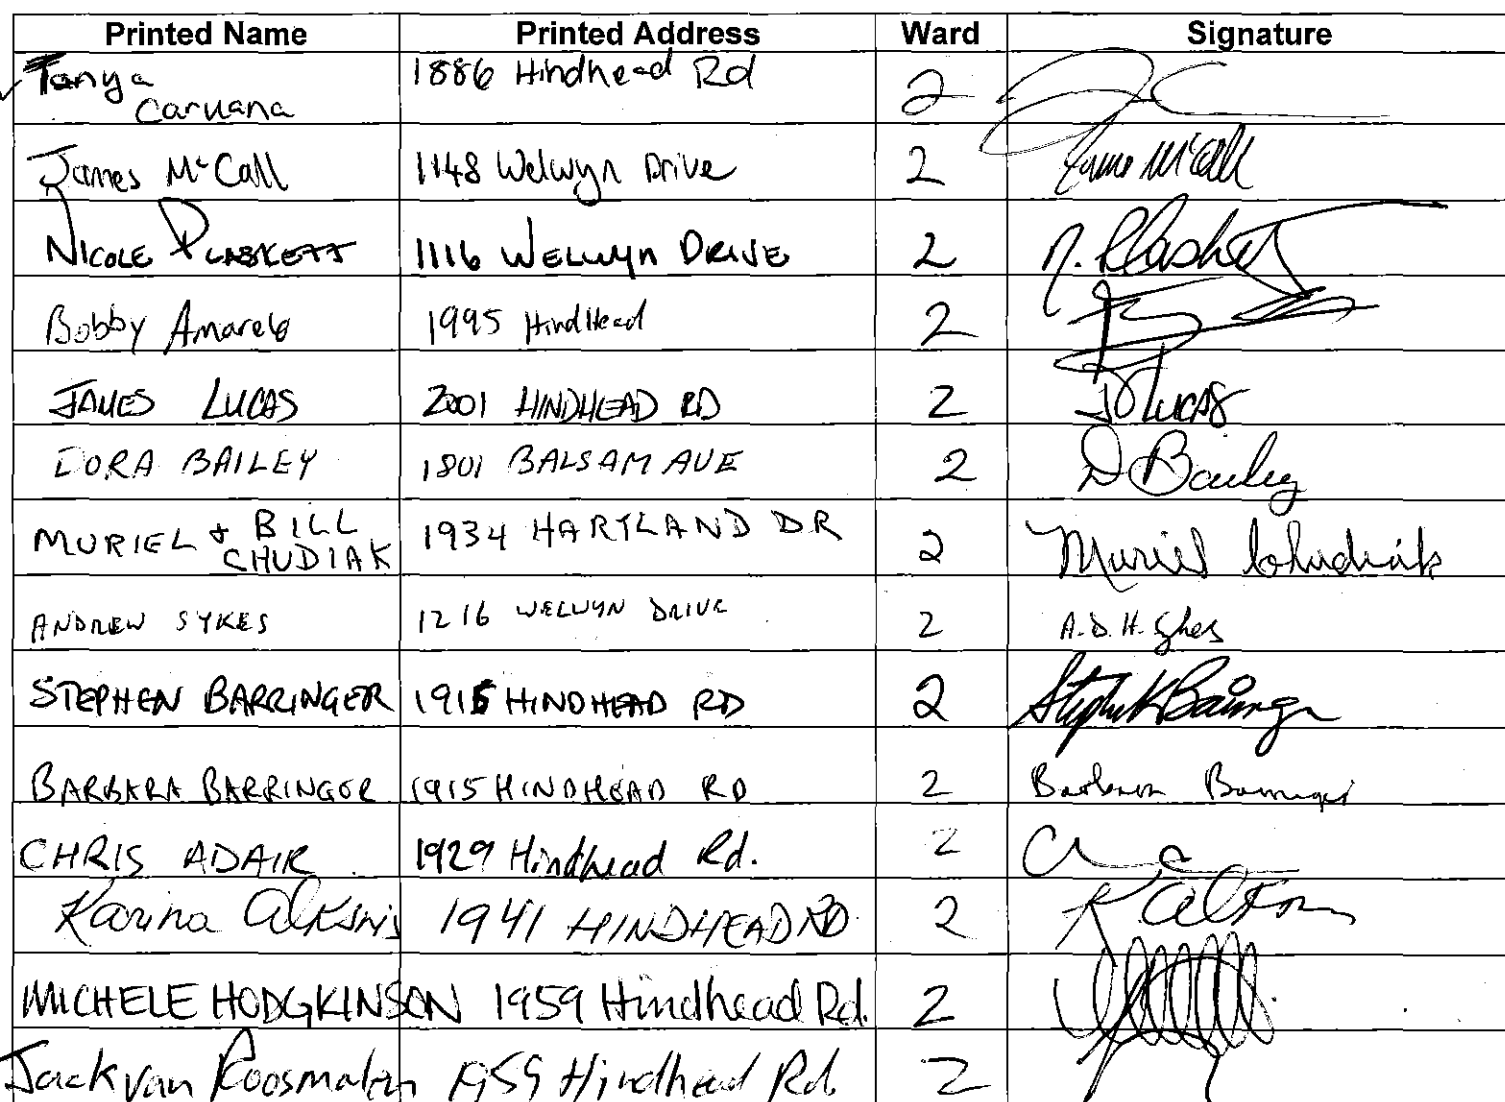 Printed Name Printed Address Ward Signature
Tanya Caruana 1886 Hindhead Rd 2
James McCall 1148 Welwyn Drive 2 James McCall
NICOLE PLASKETT 1116 WELWYN DRIVE 2 N. Plaskett
Bobby Amarelo 1995 HindHead 2
JAMES LUCAS 2001 HINDHEAD RD 2 JD Lucas
DORA BAILEY 1801 BALSAM AVE 2 D Bailey
MURIEL + BILL CHUDIAK 1934 HARTLAND DR 2 Muriel Chudiak
ANDREW SYKES 1216 WELWYN DRIVE 2 A.D.H. Sykes
STEPHEN BARRINGER 1915 HINDHEAD RD 2 Stephen Barringer
BARBARA BARRINGER 1915 HINDHEAD RD 2 Barbara Barringer
CHRIS ADAIR 1929 Hindhead Rd. 2
Karina Alksnis 1941 HINDHEAD RD 2 K Alksnis
MICHELE HODGKINSON 1959 Hindhead Rd. 2
Jack van Roosmalen 1959 Hindhead Rd. 2